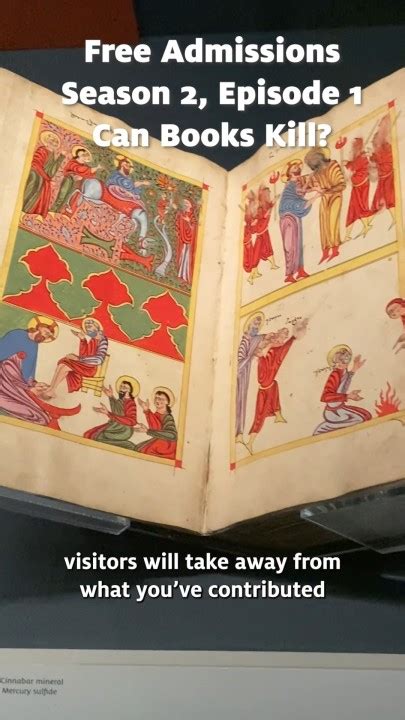 Free Admissions
Season 2, Episode 1
Can Books Kill?
visitors will take away from
what you’ve contributed
Cinnabar mineral
Mercury sulfide